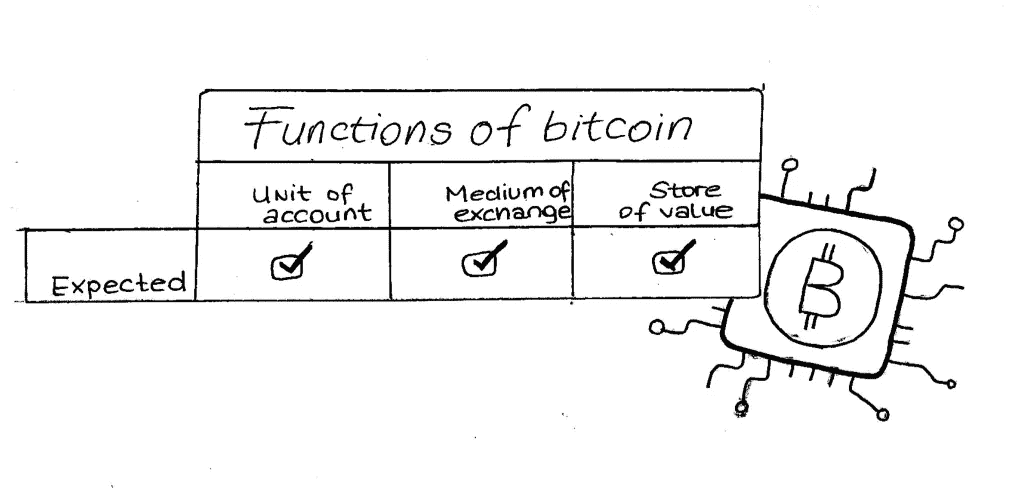 Functions of bitcoin
Unit of
account
Medium of
exchange
Store
of value
Expected